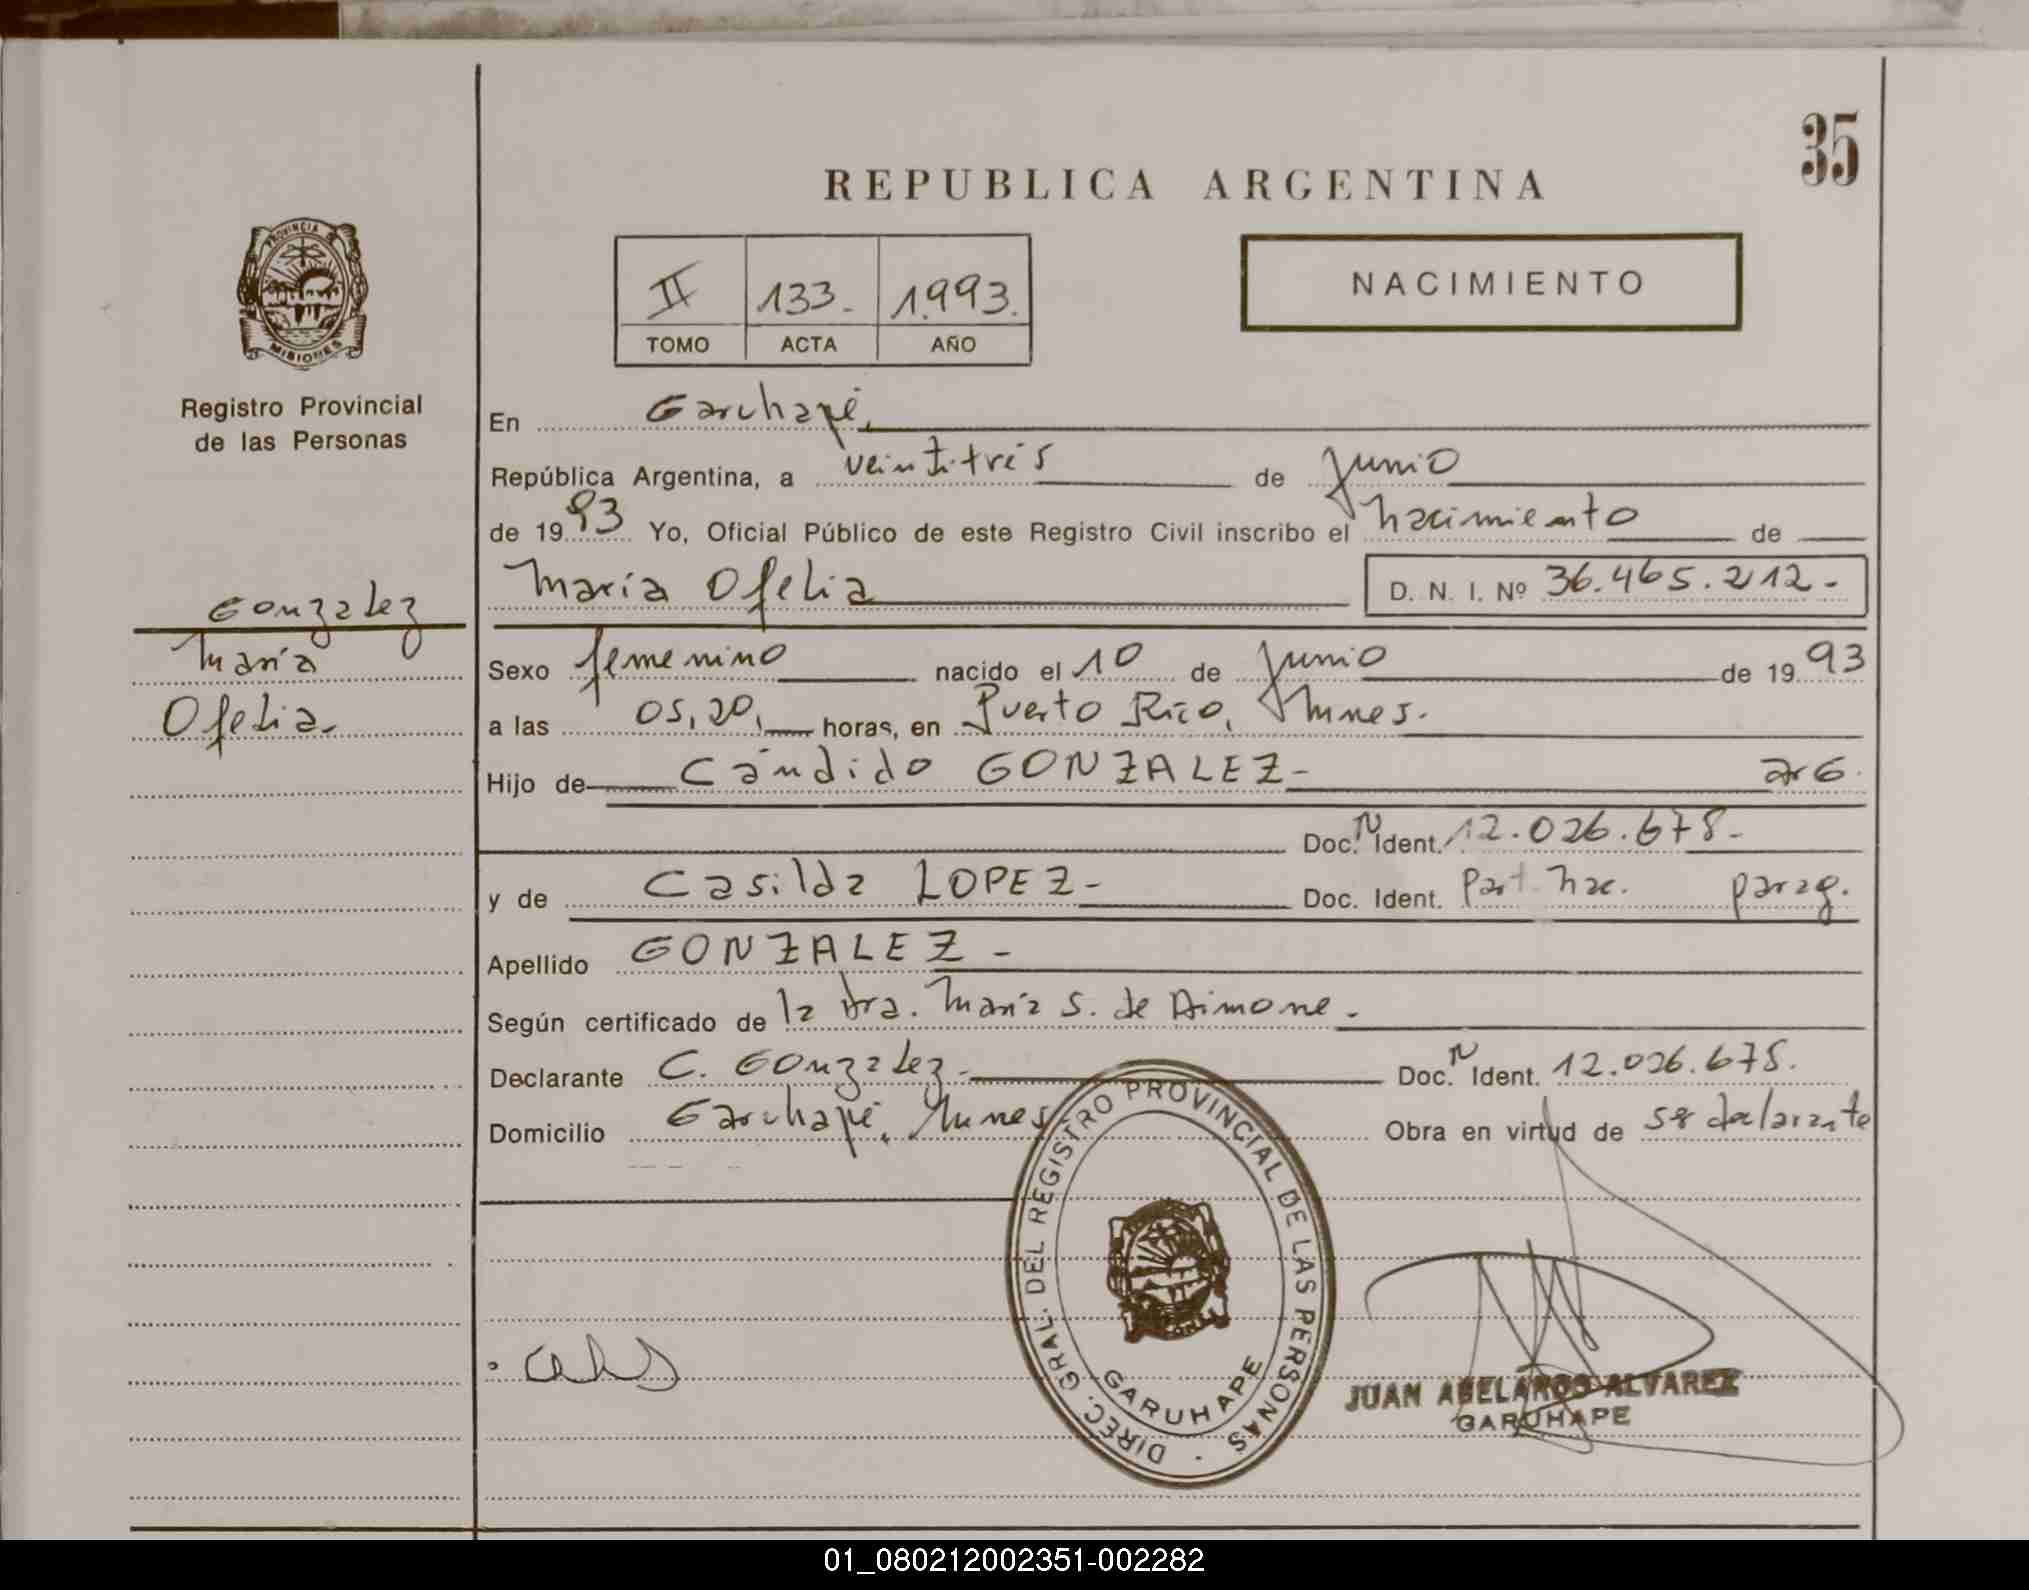 35
REPUBLICA ARGENTINA
PROVINCIA DE
MISIONES
Registro Provincial
de las Personas
II 133.- 1.993.
TOMO ACTA AÑO
NACIMIENTO
En Garuhapé,
República Argentina, a veintitrés de Junio
de 1993 Yo, Oficial Público de este Registro Civil inscribo el nacimiento de
María Ofelia D. N. I. Nº 36.465.212.-
Gonzalez
María
Ofelia.
Sexo femenino nacido el 10 de Junio de 1993
a las 05,20, horas, en Puerto Rico, Mnes.
Hijo de Cándido GONZALEZ- arG.
Doc. N Ident. 12.026.678.-
y de Casilda LOPEZ- Doc. Ident. Part. nac. parag.
Apellido GONZALEZ -
Según certificado de la dra. María S. de Aimone.-
Declarante C. Gonzalez.- Doc. N Ident. 12.026.678.
Domicilio Garuhapé, Mnes Obra en virtud de ser declarante
DIREC. GRAL. DEL REGISTRO PROVINCIAL DE LAS PERSONAS
GARUHAPE
JUAN ABELARDO ALVAREZ
GARUHAPE
01_080212002351-002282